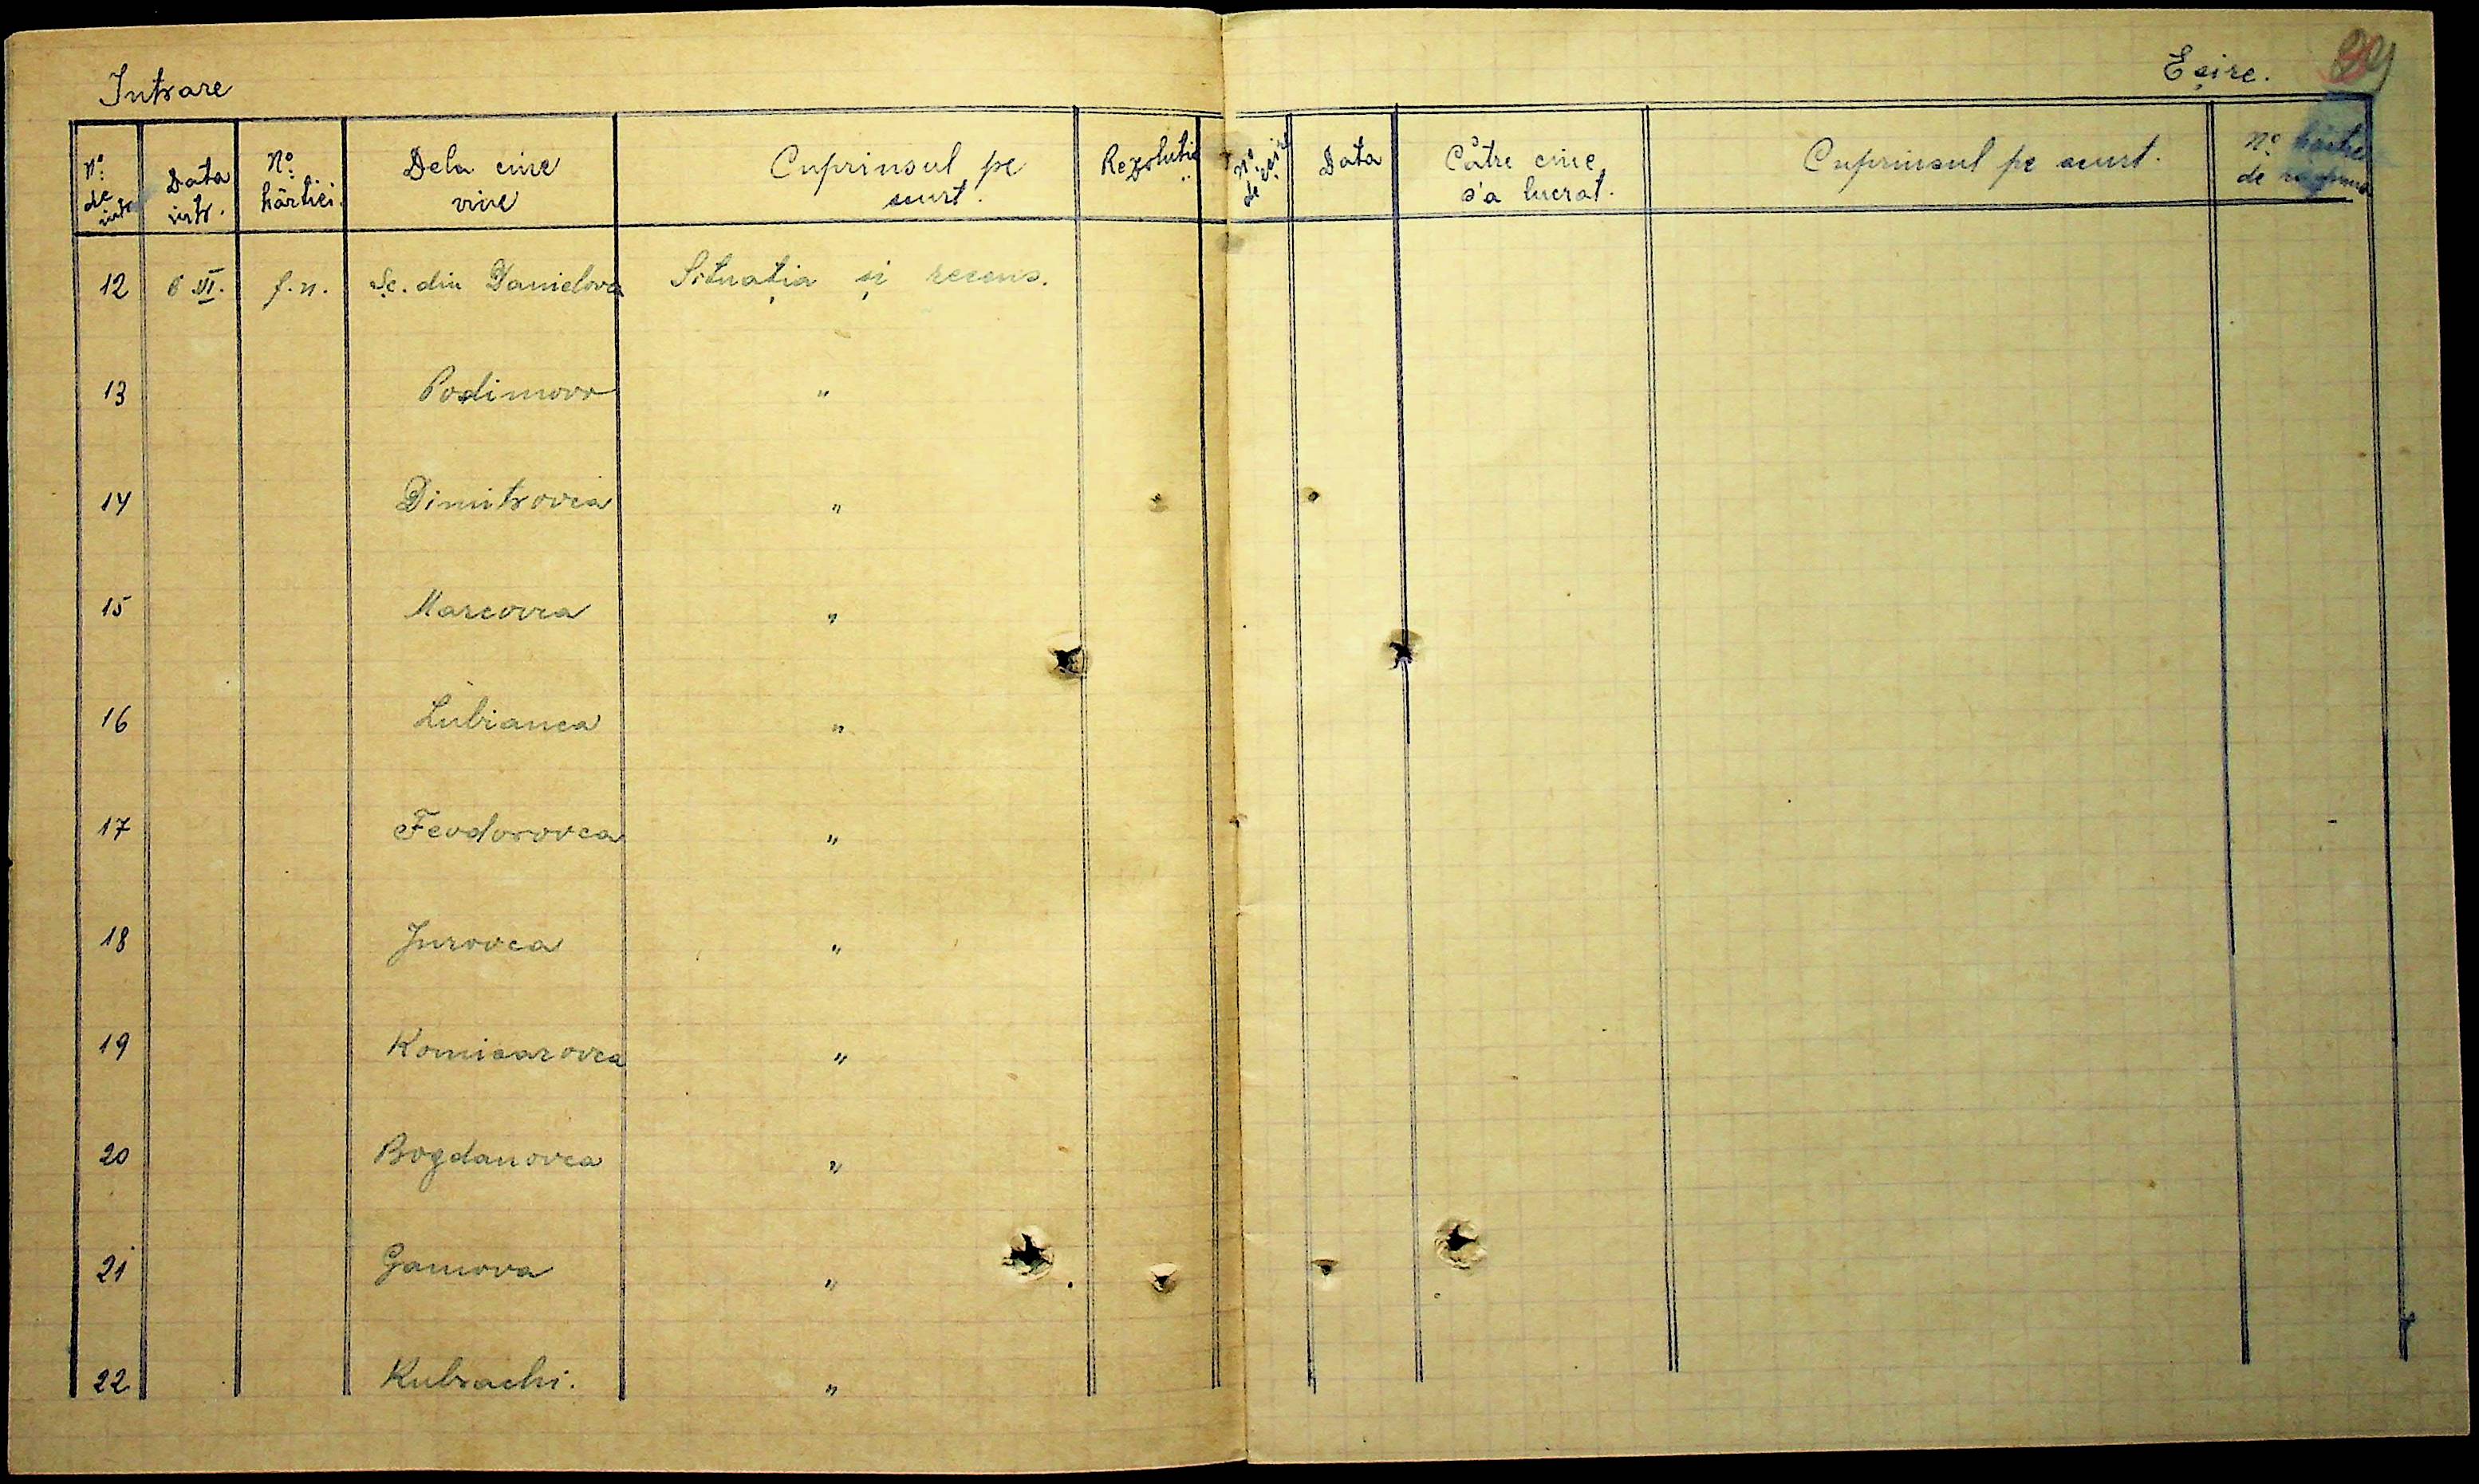 Intrare
Eșire.
Nº de intr.
Data intr.
Nº hârtiei.
Dela cine vine
Cuprinsul pe scurt.
Rezoluție
Nº de eșire
Data
Către cine s'a lucrat.
Cuprinsul pe scurt.
Nº hârtiei de
12 VI. f.n. Șc. din Danielova Situația și recens.
13 Podimovo "
14 Dimitrovca "
15 Marcovca "
16 Lubianca "
17 Feodorovca "
18 Jurovca "
19 Komisarovca "
20 Bogdanovca "
21 Gamova "
22 Kubrachi. "